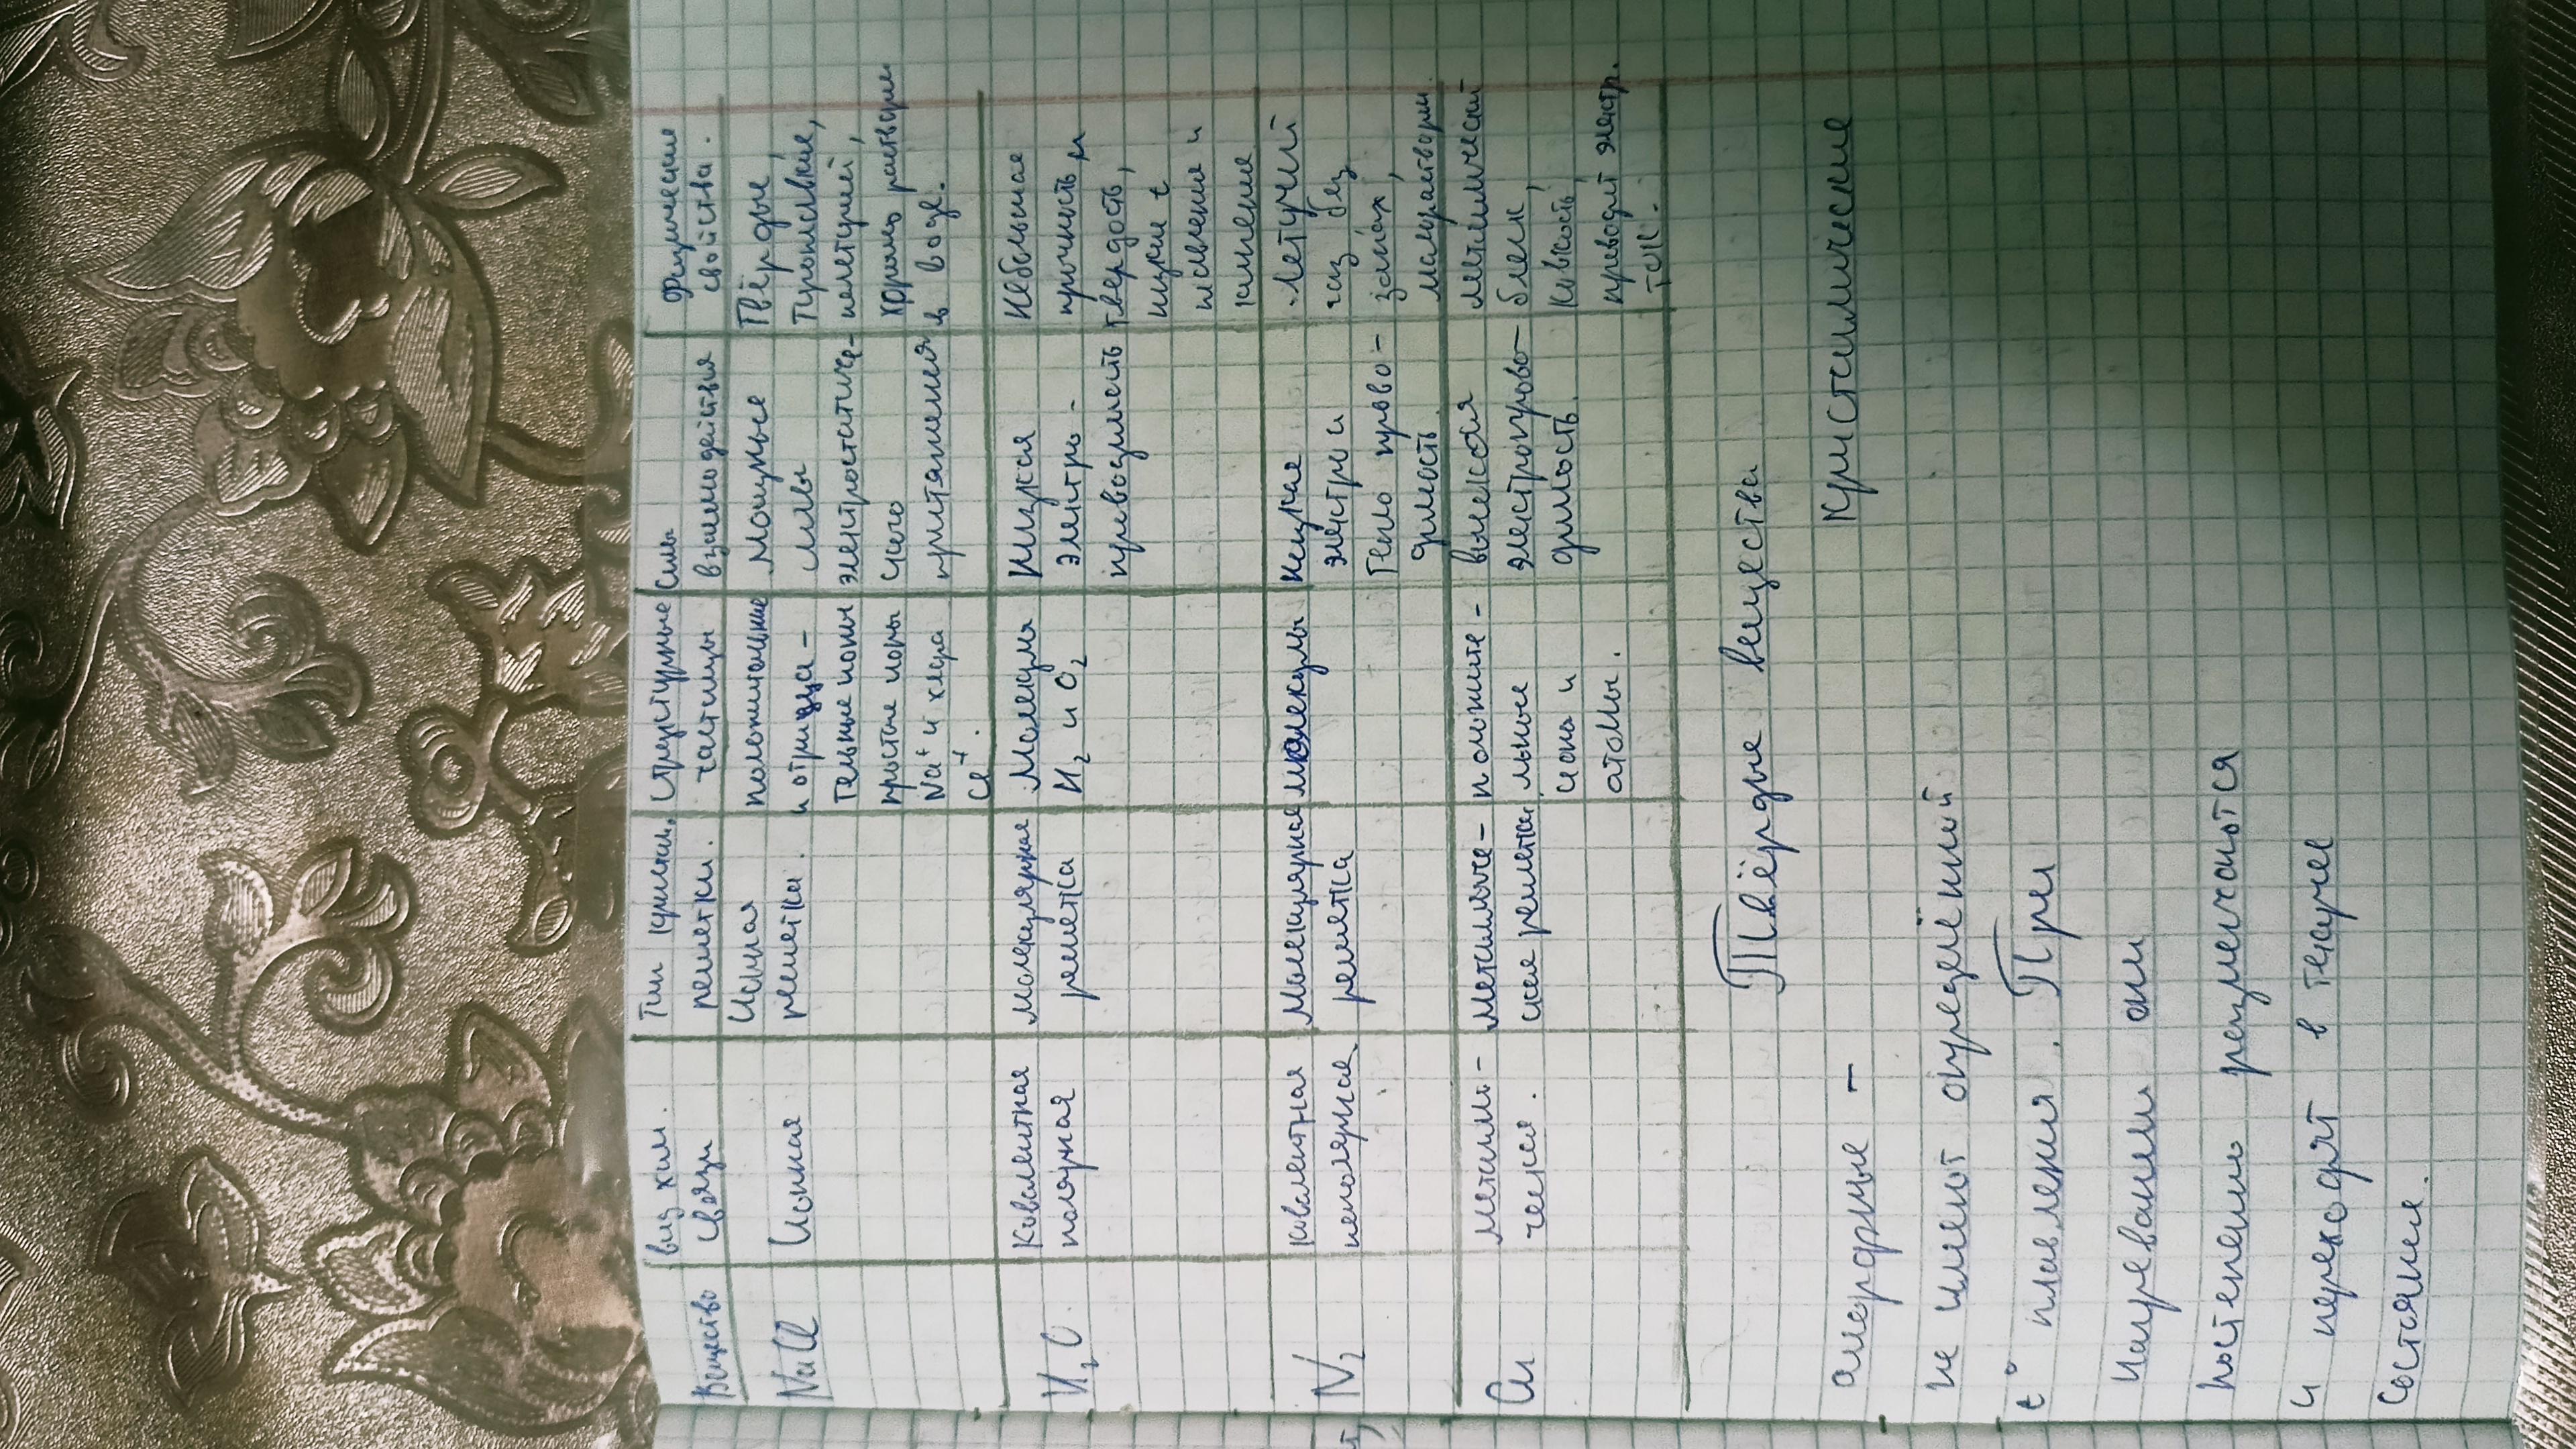 Вещество
вид хим.
связи
Тип кристал.
решетки.
Структурные
частицы
Силы
взаимодействия
Физические
свойства.
NaCl
Ионная
Ионная
решетка.
положительные
и отрица-
тельные ионы
простые ионы
Na⁺ и хлора
Cl⁺.
Мощные
силы
электростатиче-
ского
притяжения
Твёрдые,
Тугоплавкие,
нелетучий,
хорошо раствори
в воде.
H₂O
Ковалентная
полярная
Молекулярная
решетка
Молекула
H₂ и O₂
Низкая
электро-
проводимость
Небольшая
прочность и
твердость,
низкая t
плавления и
кипение
N₂
Ковалентная
неполярная
Молекулярная
решетка
молекулы
Низкая
электро и
Тепло прово-
димость
Летучий
газ без
запаха,
малораствори
Cu
металли-
ческая.
Металличе-
ская решетка
положите-
льные
иона и
атомы.
высокая
электропрово-
димость.
металлический
блеск,
ковкость,
проводит электр.
ток.
Твёрдые вещества
аморфные -
Кристаллические
не имеют определённый
t° плавления. При
нагревании они
постепенно размягчаются
и переходят в текучее
состояние.